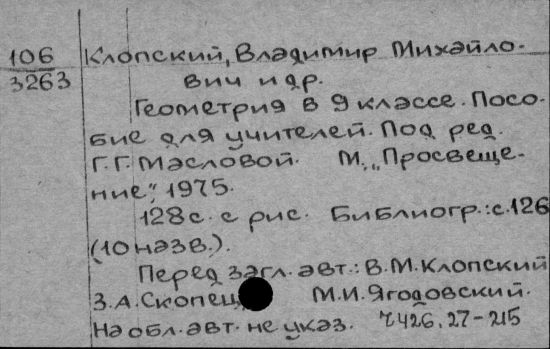 106
3263
Клопский, Владимир Михайло-
вич и др.
Геометрия в 9 классе. Посо-
бие для учителей. Под ред.
Г.Г. Масловой. М., „Просвеще-
ние", 1975.
128с. с рис. Библиогр.: с.126
(10 назв.).
Перед загл. авт.: В.М. Клопский
З.А. Скопец, М.И. Ягодовский.
На обл. авт. не указ. 7426.27-215